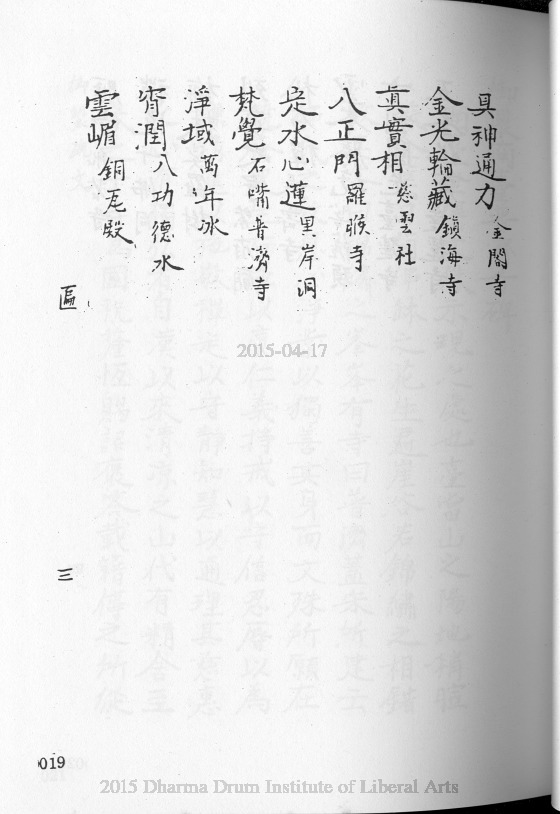 具神通力 金閣寺
金光輪藏 鎮海寺
真實相 慈雲社
八正門 羅睺寺
定水心蓮 黑岸洞
梵覺 石嘴普濟寺
淨域 萬年冰
窅潤 八功德水
雲嵋 銅瓦殿
匾
三
0019
2015-04-17
2015 Dharma Drum Institute of Liberal Arts